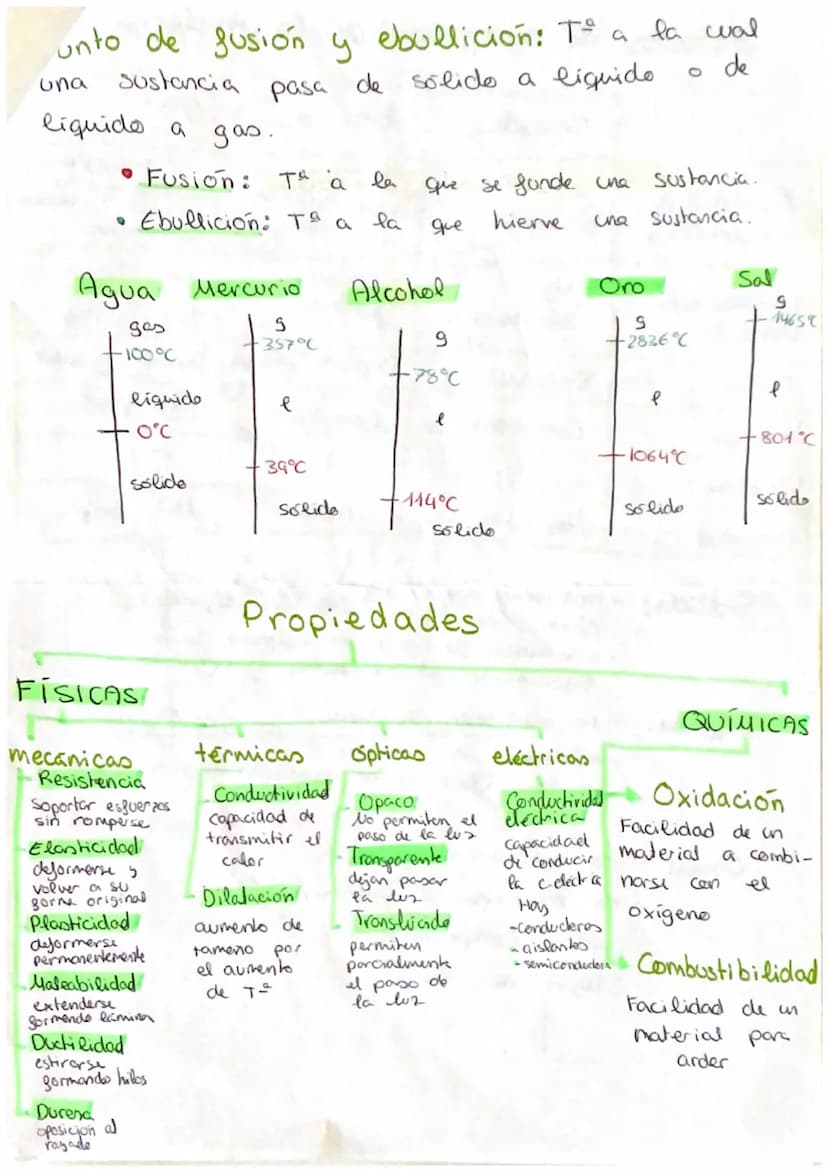 unto de fusión y ebullición: Tª a la cual
una sustancia pasa de sólido a líquido o de
líquido a gas.
• Fusión: Tª a la que se funde una sustancia.
• Ebullición: Tª a la que hierve una sustancia.
Agua
gas
100°C
líquido
0°C
sólido
Mercurio
g
357°C
l
39°C
sólido
Alcohol
g
78°C
l
-114°C
sólido
Oro
g
2836°C
l
1064°C
sólido
Sal
g
1465°C
l
801°C
sólido
Propiedades
FÍSICAS
mecánicas
Resistencia
Soportar esfuerzos
sin romperse
Elasticidad
deformerse y
volver a su
forma original
Plasticidad
deformerse
permanentemente
Maleabilidad
extenderse
formando lámina
Ductilidad
estirarse
formando hilos
Dureza
oposición al
rayado
térmicas
Conductividad
capacidad de
transmitir el
calor
Dilatación
aumento de
tamaño por
el aumento
de Tª
ópticas
Opaco
No permiten el
paso de la luz
Transparente
dejan pasar
la luz
Translúcido
permiten
parcialmente
el paso de
la luz
eléctricas
Conductividad
eléctrica
capacidad
de conducir
la c eléctrica
Hay
-conductores
-aislantes
-semiconductores
QUÍMICAS
Oxidación
Facilidad de un
material a combi-
narse con el
oxígeno
Combustibilidad
Facilidad de un
material para
arder